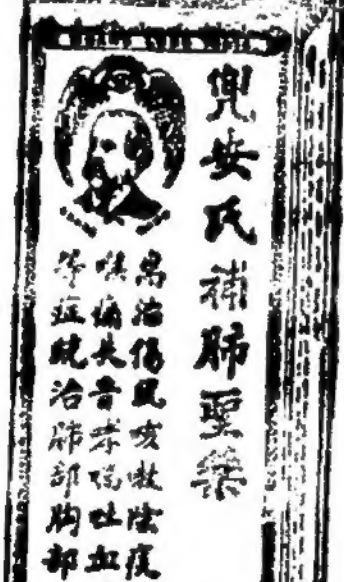 兜安氏補肺聖藥
專治傷風咳嗽陰痰
喉痛失音哮喘吐血
等症統治肺部胸部